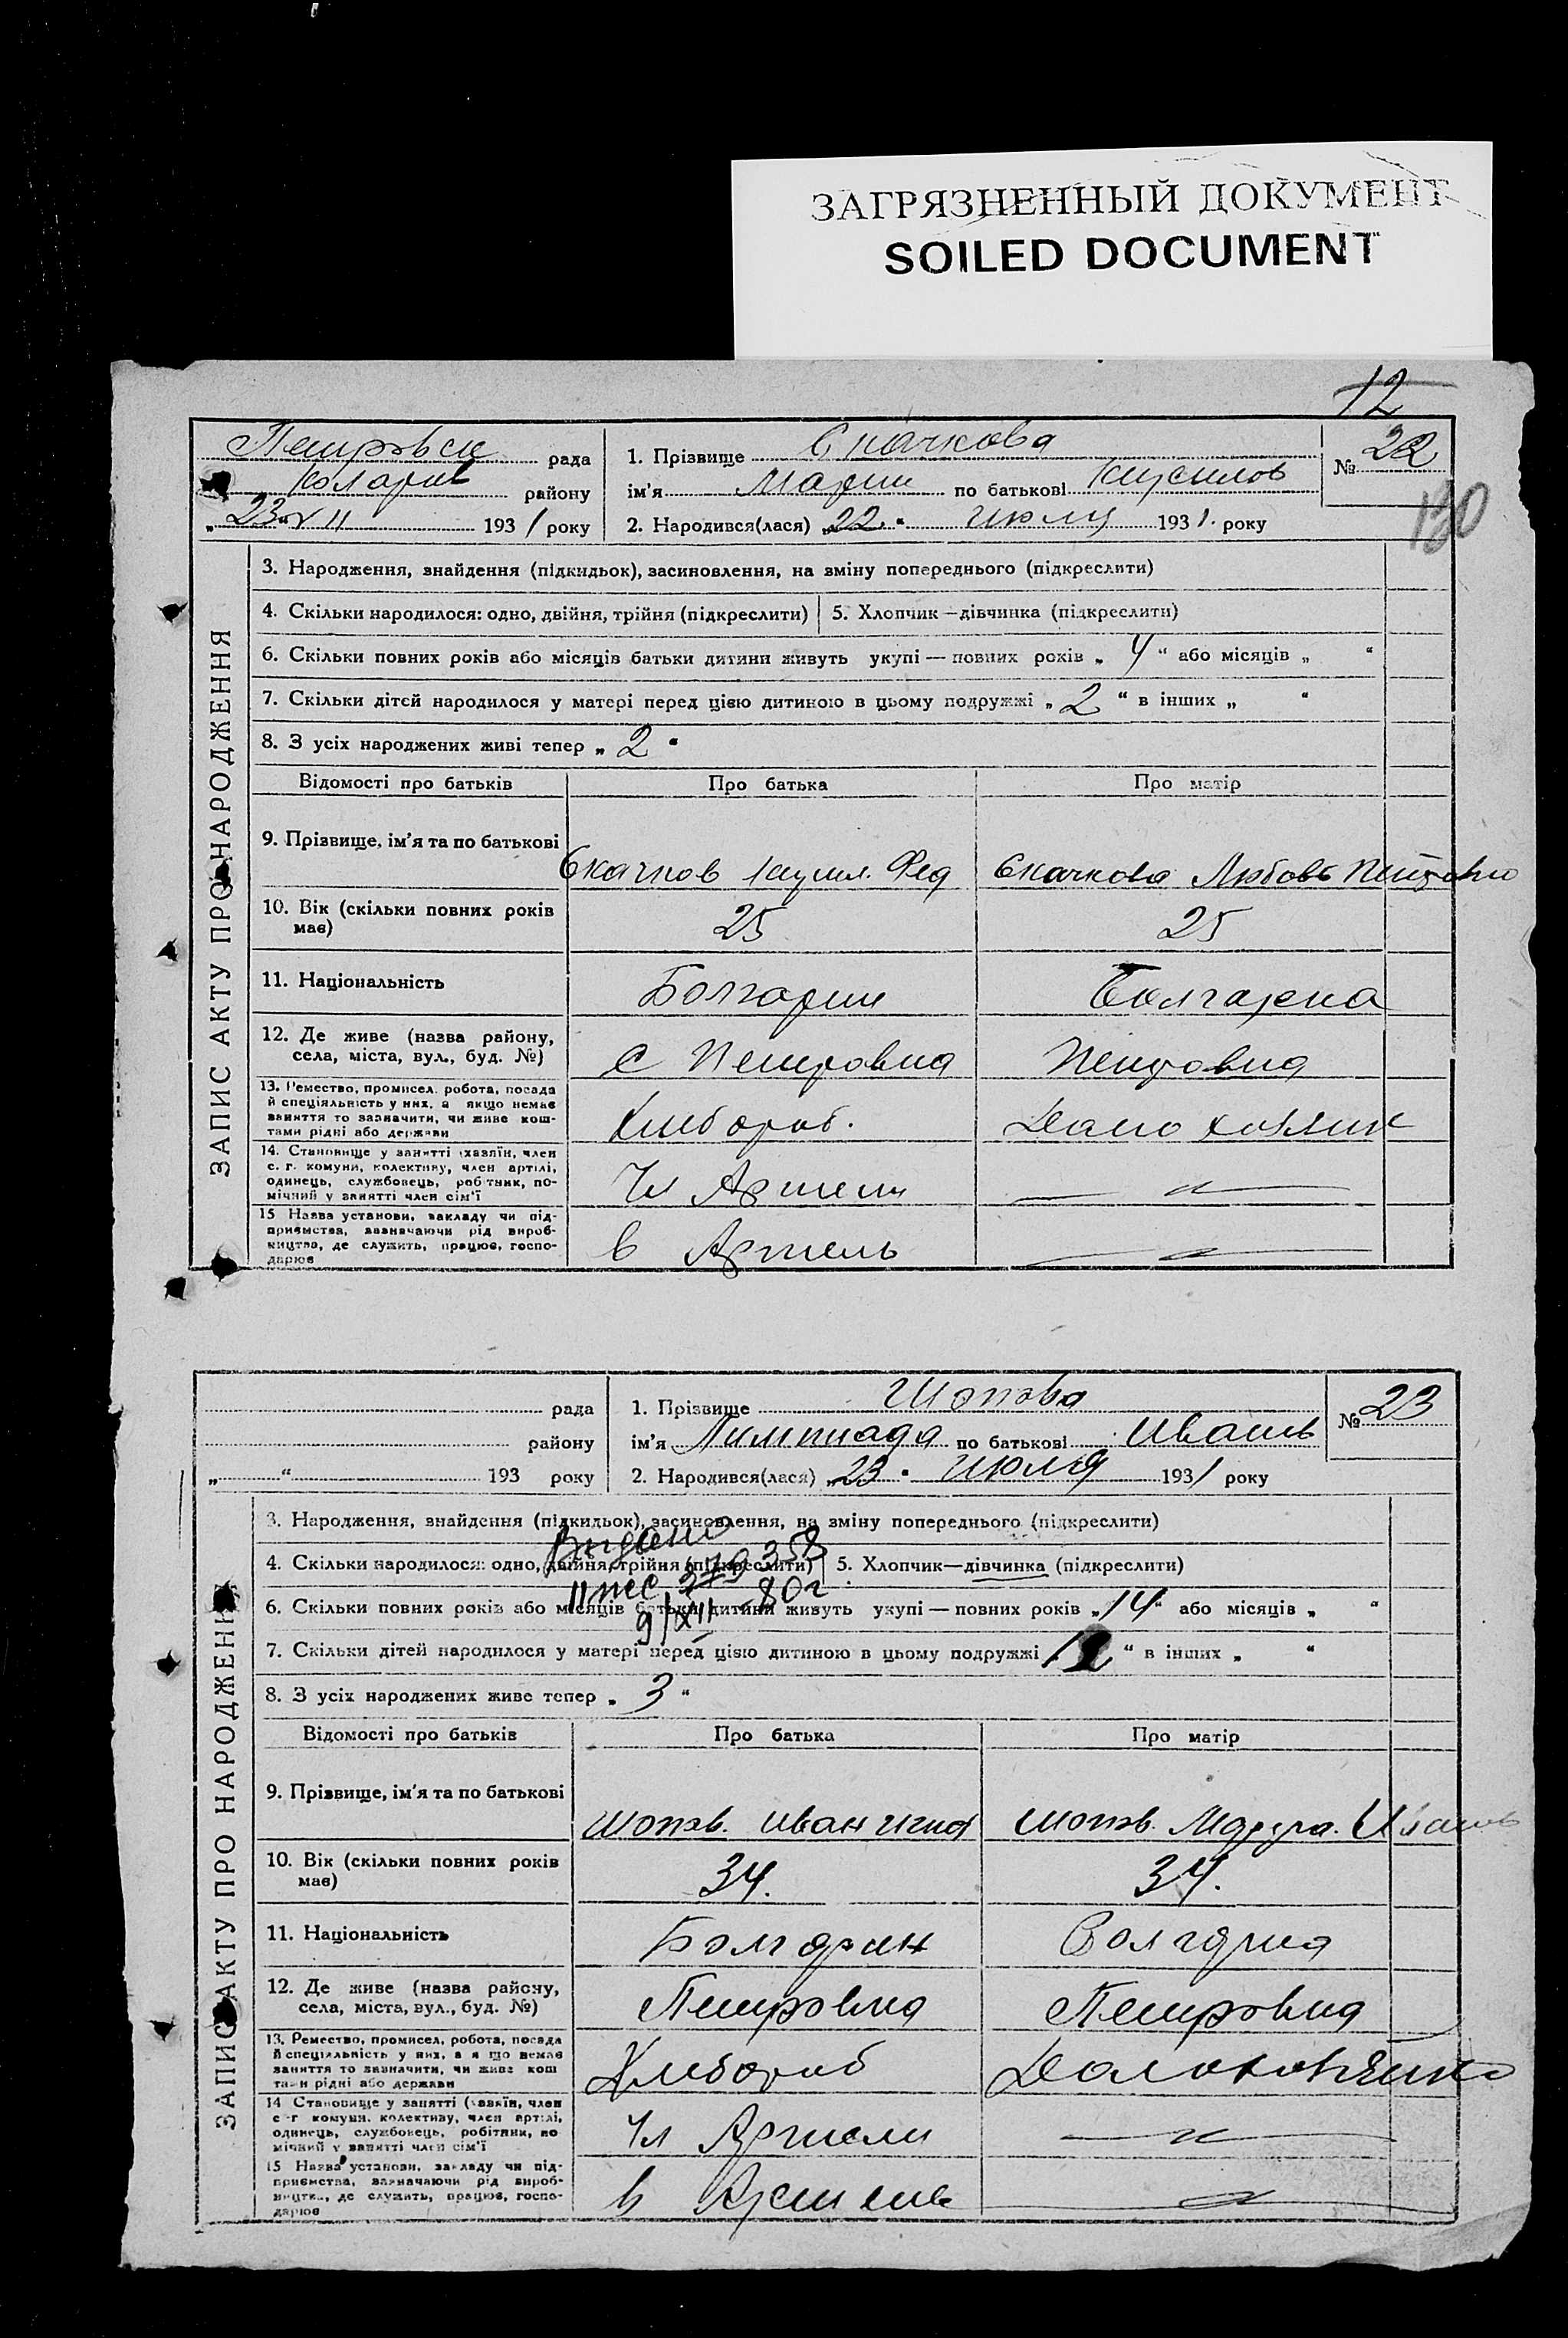 ЗАГРЯЗНЕННЫЙ ДОКУМЕНТ
SOILED DOCUMENT
12
Петровск рада
Коларів району
„23" VII 1931 року
1. Прізвище Скачкова
ім'я Марии по батькові
2. Народився(лася) „22" июля 1931. року
№ 22
130
ЗАПИС АКТУ ПРО НАРОДЖЕННЯ
3. Народження, знайдення (підкидьок), засиновлення, на зміну попереднього (підкреслити)
4. Скільки народилося: одно, двійня, трійня (підкреслити) 5. Хлопчик—дівчинка (підкреслити)
6. Скільки повних років або місяців батьки дитини живуть укупі — повних років „ 4 " або місяців „ "
7. Скільки дітей народилося у матері перед цією дитиною в цьому подружжі „ 2 " в інших „ "
8. З усіх народжених живі тепер „ 2 "
Відомості про батьків Про батька Про матір
9. Прізвище, ім'я та по батькові
Скачков Фед Скачкова Любовь
10. Вік (скільки повних років має) 25 25
11. Національність Болгарин Болгарка
12. Де живе (назва району, села, міста, вул., буд. №) С Петровка Петровка
13. Ремество, промисел, робота, посада й спеціяльність у них, а якщо немає заняття то зазначити, чи живе коштами рідні або держави
Хлибороб.
14. Становище у занятті (хазяїн, член с. г. комуни, колективу, член артілі, одинець, службовець, робітник, помічний у занятті член сім'ї
Чл Артели — „ —
15 Назва установи, закладу чи підприємства, зазначаючи рід виробництва, де служить, працює, господарює
в Артель — „ —
рада
району
„ " 193 року
1. Прізвище Шопова
ім'я Лимпиада по батькові Иванов
2. Народився(лася) „23" июля 1931 року
№ 23
ЗАПИС АКТУ ПРО НАРОДЖЕННЯ
3. Народження, знайдення (підкидьок), засиновлення, на зміну попереднього (підкреслити)
Видано
4. Скільки народилося: одно, двійня, трійня (підкреслити) 5. Хлопчик—дівчинка (підкреслити)
9/XII -80г
6. Скільки повних років або місяців батьки дитини живуть укупі — повних років „14" або місяців „ "
7. Скільки дітей народилося у матері перед цією дитиною в цьому подружжі " в інших „ "
8. З усіх народжених живе тепер „ 3 "
Відомості про батьків Про батька Про матір
9. Прізвище, ім'я та по батькові
Шопов. Иван Игнат Шопов. Иванов
10. Вік (скільки повних років має) 34. 34.
11. Національність Болгарин Болгарка
12. Де живе (назва району, села, міста, вул., буд. №) Петровка Петровка
13. Ремество, промисел, робота, посада й спеціяльність у них, а якщо немає заняття то зазначити, чи живе коштами рідні або держави
Хлибороб
14 Становище у занятті (хазяїн, член с-г комуни, колективу, член артілі, одинець, службовець, робітник, помічний у занятті член сім'ї
Чл Артели — „ —
15 Назва установи, закладу чи підприємства, зазначаючи рід виробництва, де служить, працює, господарює
в Артель — „ —